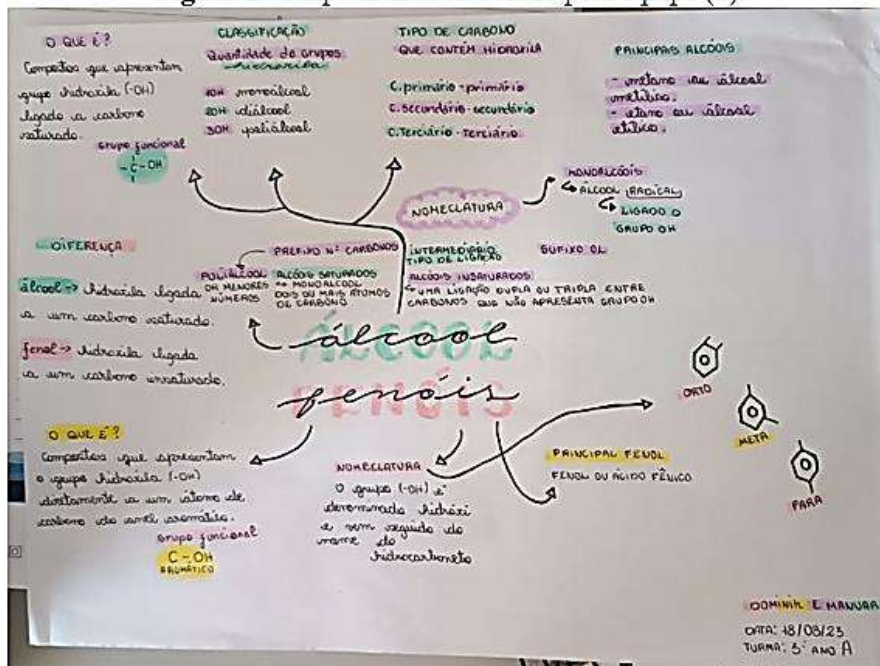 O QUE É?
Compostos que apresentam
grupo hidroxila (-OH)
ligado a carbono
saturado.
GRUPO FUNCIONAL
-C-OH
CLASSIFICAÇÃO
Quantidade de grupos
hidroxila
1OH monoálcool
2OH diálcool
3OH poliálcool
TIPO DE CARBONO
QUE CONTÉM HIDROXILA
C.primário-primário
C.secundário-secundário
C.Terciário-Terciário
PRINCIPAIS ALCÓOIS
- metano ou álcool
metílico.
- etano ou álcool
etílico.
NOMECLATURA
MONOALCÓOIS
ÁLCOOL (RADICAL)
LIGADO O
GRUPO OH
DIFERENÇA
álcool -> hidroxila ligada
a um carbono saturado.
fenol -> hidroxila ligada
a um carbono insaturado.
PREFIXO N° CARBONOS
INTERMEDIÁRIO
TIPO DE LIGAÇÃO
SUFIXO OL
POLIÁLCOOL
OH MENORES
NÚMEROS
ALCÓOIS SATURADOS
MONOALCOOL
DOIS OU MAIS ÁTOMOS
DE CARBONO
ALCÓOIS INSATURADOS
UMA LIGAÇÃO DUPLA OU TRIPLA ENTRE
CARBONOS QUE NÃO APRESENTA GRUPO OH
álcool
ÁLCOOL
fenóis
FENÓIS
O QUE É?
Compostos que apresentam
o grupo hidroxila (-OH)
diretamente a um átomo de
carbono do anel aromático.
GRUPO FUNCIONAL
C-OH
AROMÁTICO
NOMECLATURA
O grupo (-OH) é
denominado hidróxi
e vem seguido do
nome do
hidrocarboneto
PRINCIPAL FENOL
FENOL OU ÁCIDO FÊNICO
ORTO
META
PARA
DOMINIK E MANUAR
DATA: 18/08/23
TURMA: 3° ANO A